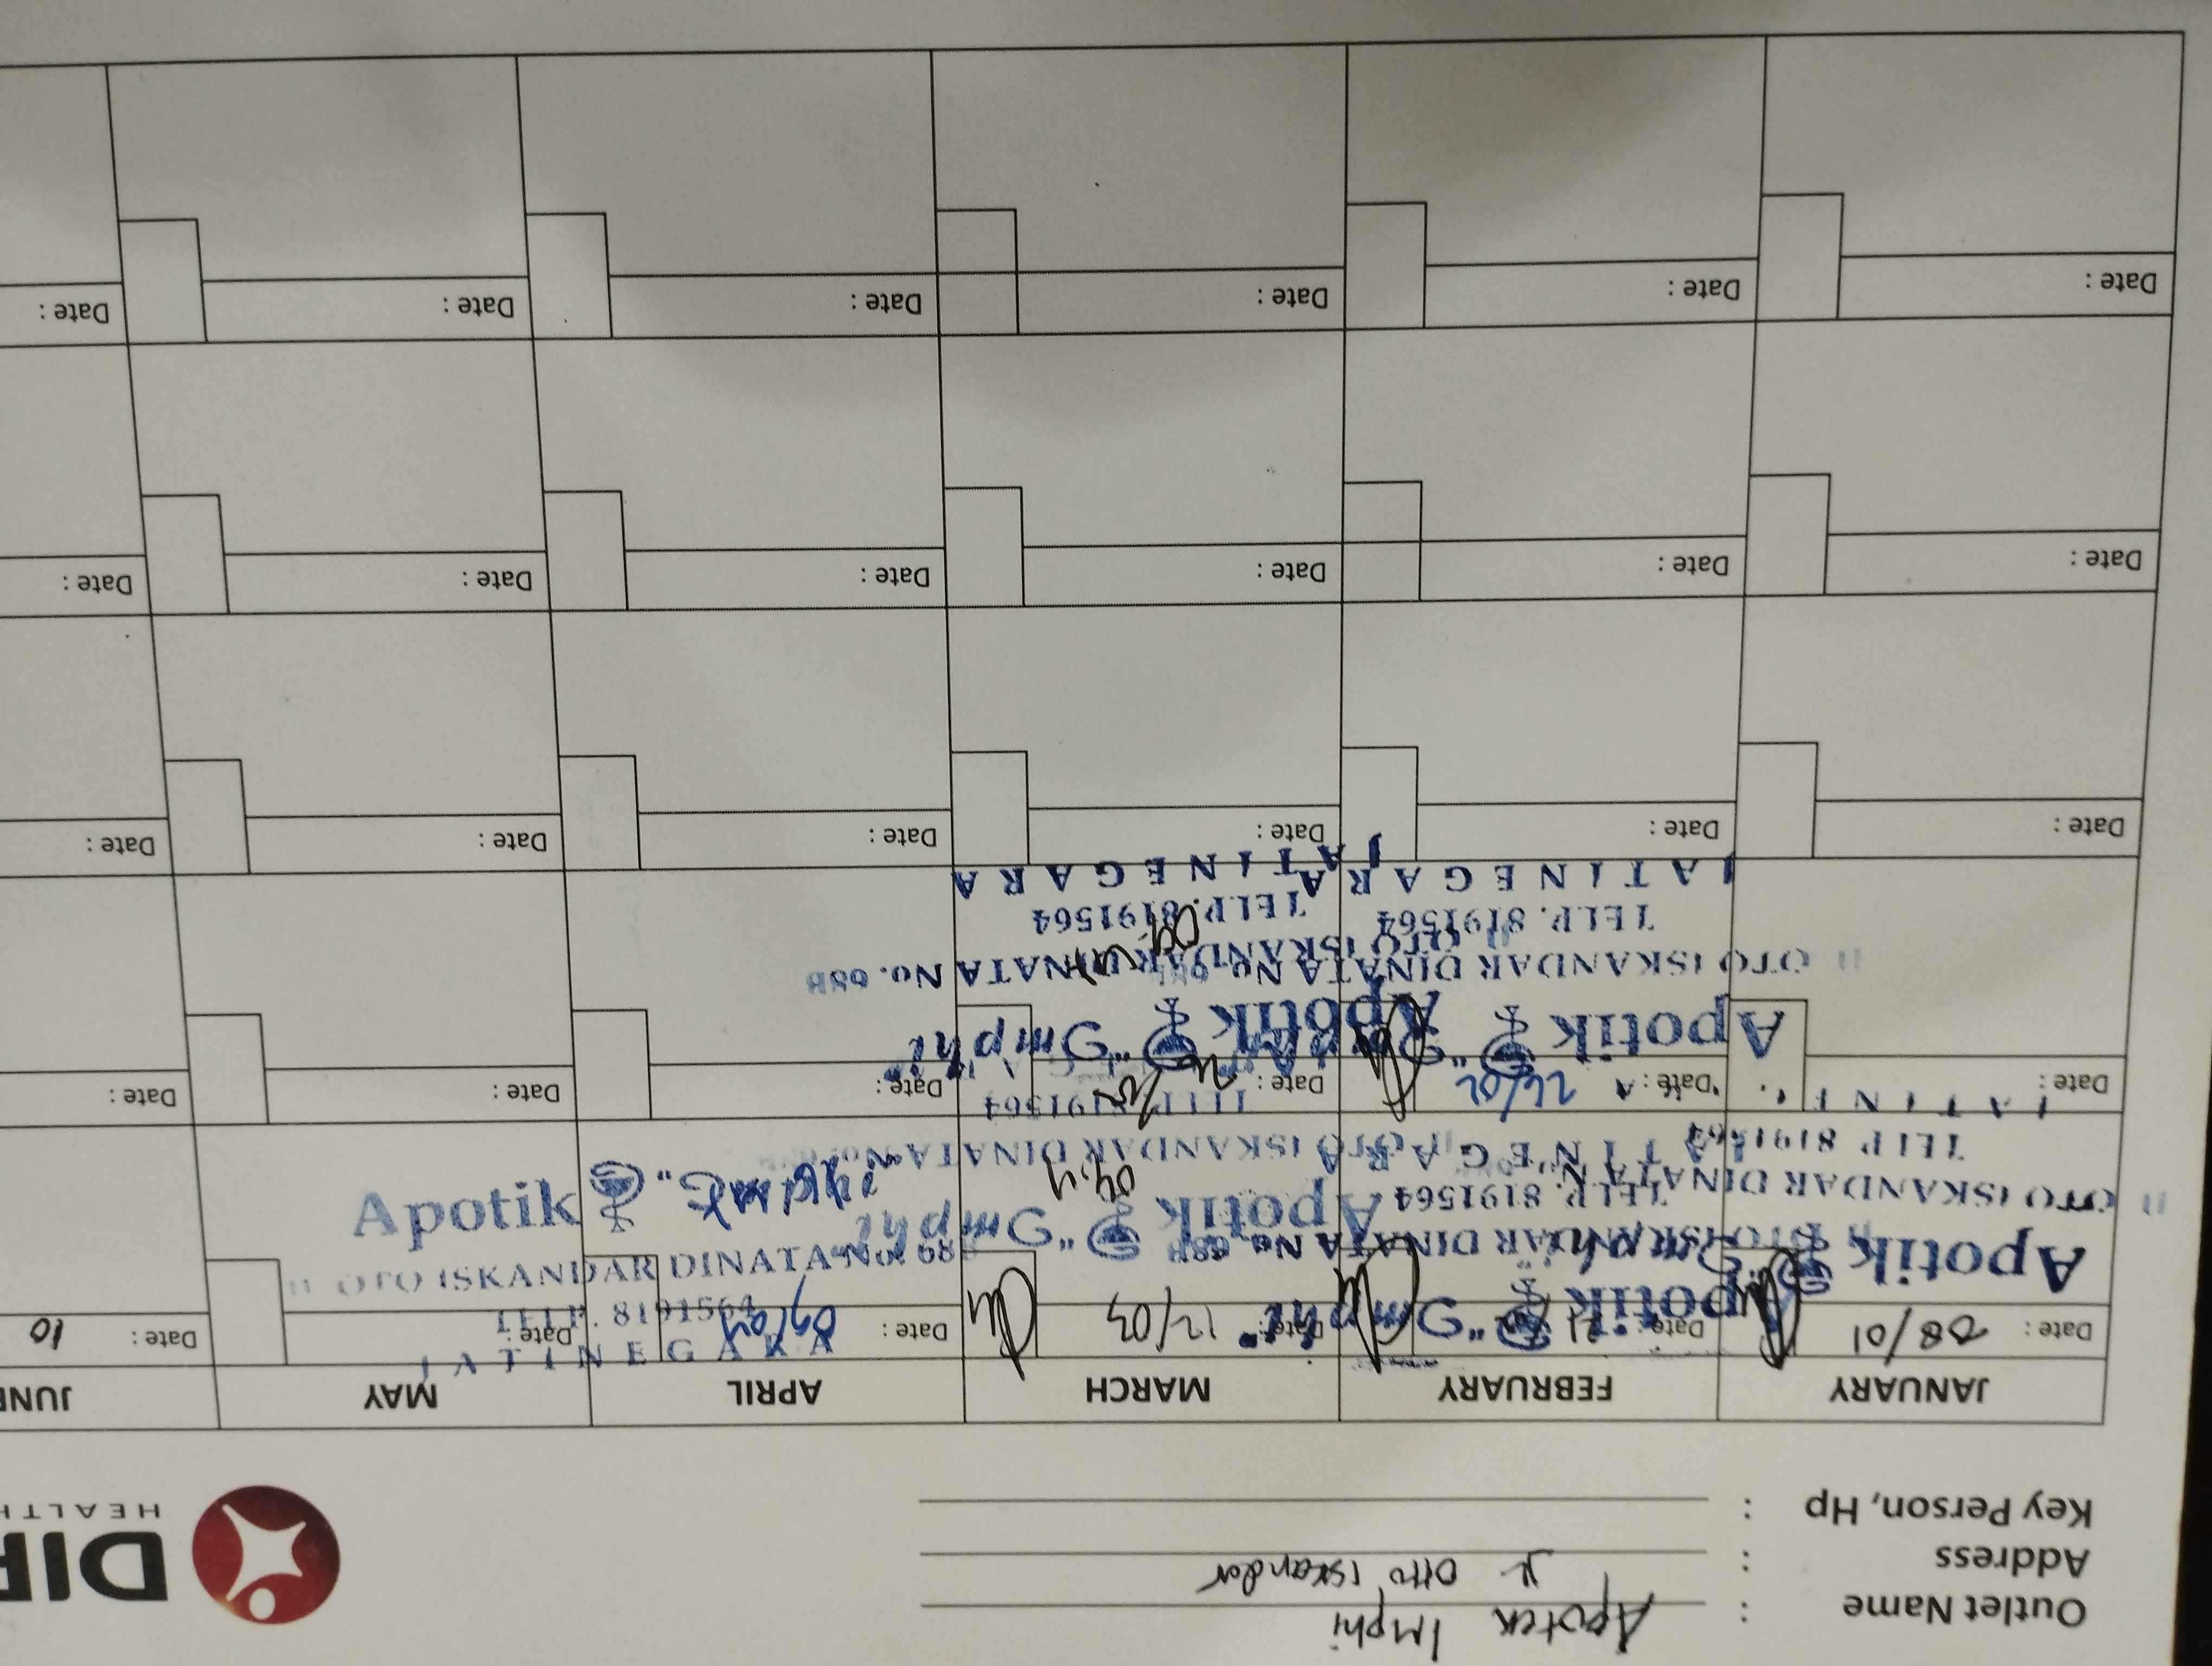 Outlet Name : Apotek Imphi
Address : Jl. Otto Iskandar
Key Person, Hp :
DIP
HEALTH
JANUARY FEBRUARY MARCH APRIL MAY JUNE
Date : 08/01 Date : Date : 12/03 Date : 09/04 Date : Date : 10
Apotik "Imphi"
Jl. OTO ISKANDAR DINATA No. 68B
TELP. 8191564
JATINEGARA
Apotik "Imphi"
OTO ISKANDAR DINATA No. 68B
TELP. 8191564
JATINEGARA
Apotik "Imphi"
OTO ISKANDAR DINATA No.
TELP. 8191564
Apotik "Imphi"
Jl. OTO ISKANDAR DINATA No. 68B
TELP. 8191564
JATINEGARA
Date : Date : 26/02 Date : Date : Date : Date :
Apotik
Jl. OTO ISKANDAR DINATA No. 68B
TELP. 8191564
JATINEGARA
Apotik "Imphi"
OTO ISKANDAR DINATA No. 68B
TELP. 8191564
JATINEGARA
Date : Date : Date : Date : Date : Date :
Date : Date : Date : Date : Date : Date :
Date : Date : Date : Date : Date : Date :